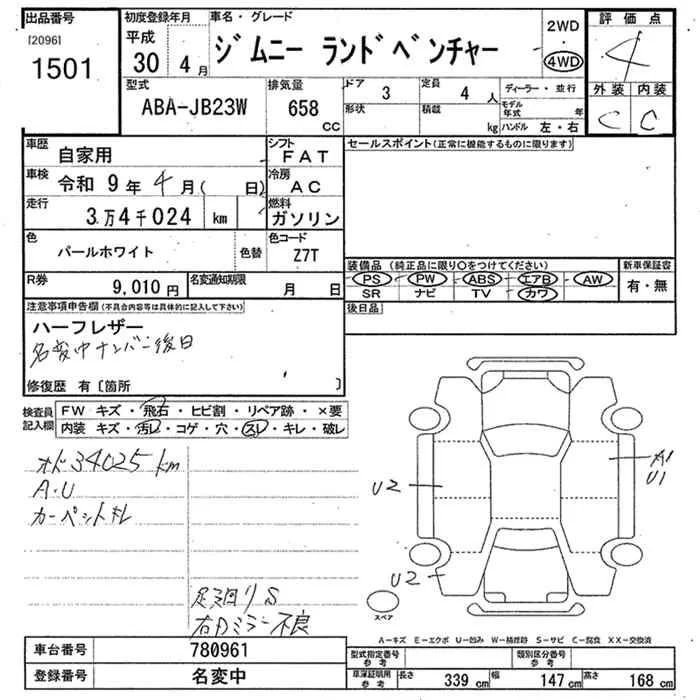 出品番号
[2096]
1501
初度登録年月
平成
30 4月
車名・グレード
ジムニー ランドベンチャー
2WD
・
4WD
評価点
4
外装 内装
C C
型式
ABA-JB23W
排気量
658
CC
ドア
3
定員
4 人
形状
積載
kg
ディーラー・並行
モデル年式 年
ハンドル 左・右
車歴
自家用
シフト
FAT
セールスポイント(正常に機能するものに限ります)
車検
令和 9年 4月( 日)
冷房
AC
走行
3万4千024 km
燃料
ガソリン
色
パールホワイト
色替
色コード
Z7T
装備品 (純正品に限り○をつけてください)
PS PW ABS エアB AW
SR ナビ TV カワ
新車保証書
有・無
R券
9,010円
名変通知期限
月 日
後日品
注意事項申告欄(不具合内容等は具体的に記入して下さい)
ハーフレザー
名変中ナンバー後日
修復歴 有〔箇所 〕
検査員記入欄
FW キズ・飛石・ヒビ割・リペア跡・×要
内装 キズ・汚レ・コゲ・穴・スレ・キレ・破レ
オド34025km
A・U
カーペット札
足廻りS
右Dミラー不良
A1
U1
U2
U2
スペア
A-キズ E-エクボ U-凹み W-補修跡 S-サビ C-腐食 XX-交換済
車台番号
780961
登録番号
名変中
型式指定番号
参考
類別区分番号
参考
車庫証明用
参考
長さ
339 cm
幅
147 cm
高さ
168 cm